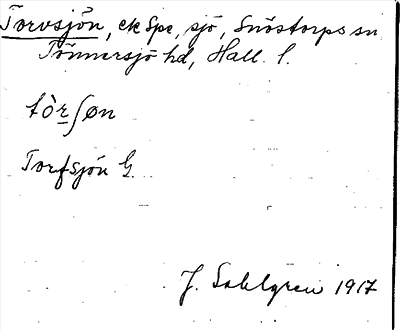 Torvsjön, ek Spe, sjö, Snöstorps sn
Tönnersjö hd, Hall. l.
tòr̲ʃøn
Torfsjön G.
J. Sahlgren 1917